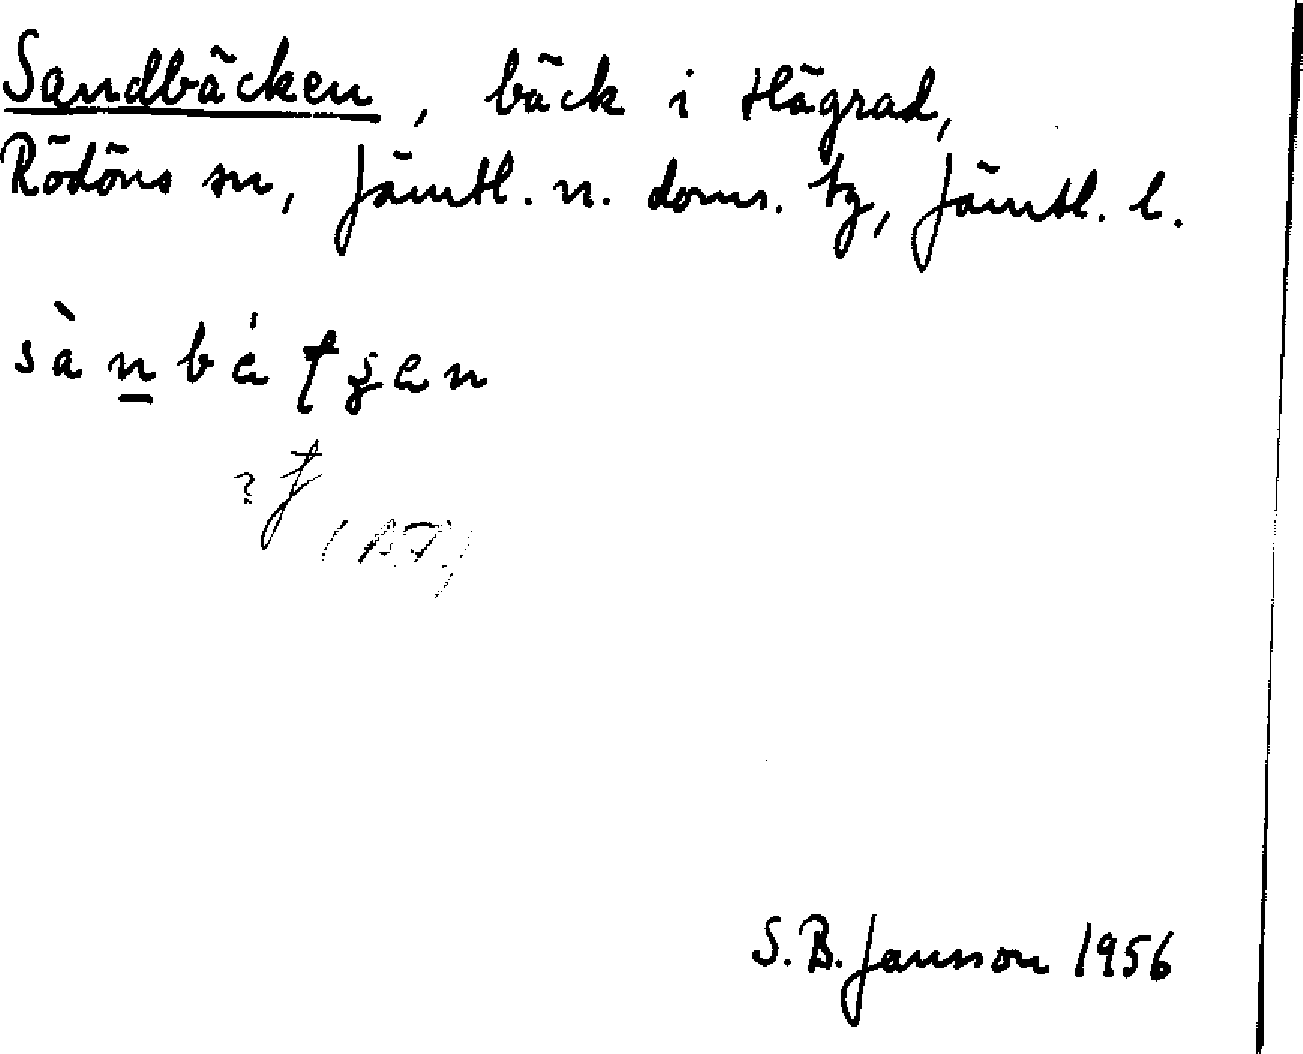 Sandbäcken, bäck i Hägrad,
Rödöns sn, Jämtl. n. doms. tg, Jämtl. l.
S. B. Jansson 1956